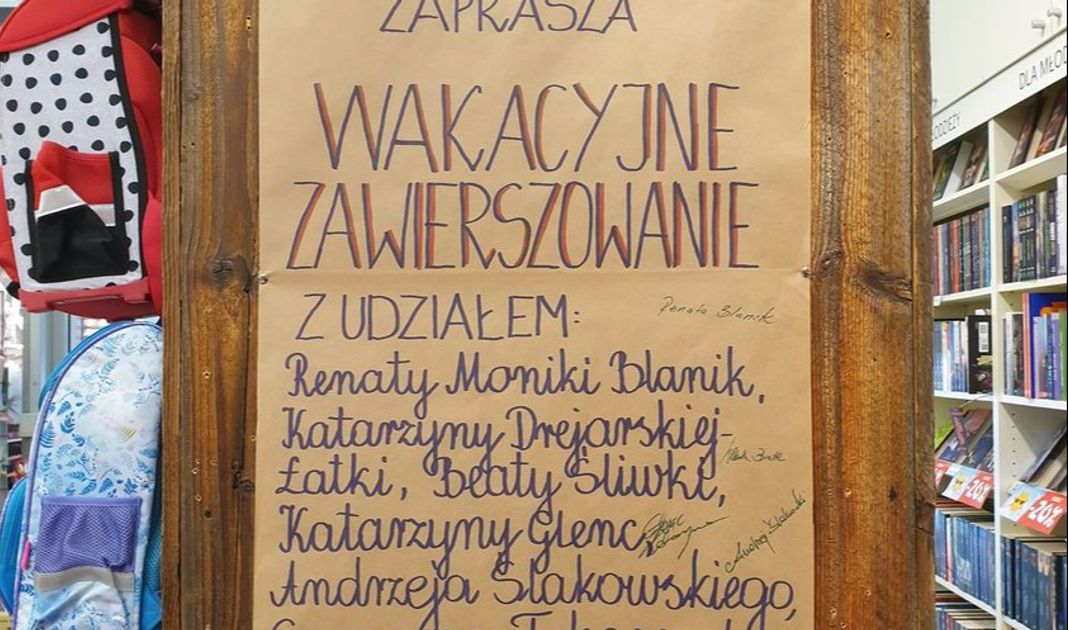 ZAPRASZA
WAKACYJNE
ZAWIERSZOWANIE
Z UDZIAŁEM:
Renata Blanik
Renaty Moniki Blanik,
Katarzyny Drejarskiej-
Łatki, Beaty Śliwki,
Katarzyny Glenc
Andrzej Ślakowski
Andrzeja Ślakowskiego,
DLA MŁOD
ODZIEŻY
-20%
-20%